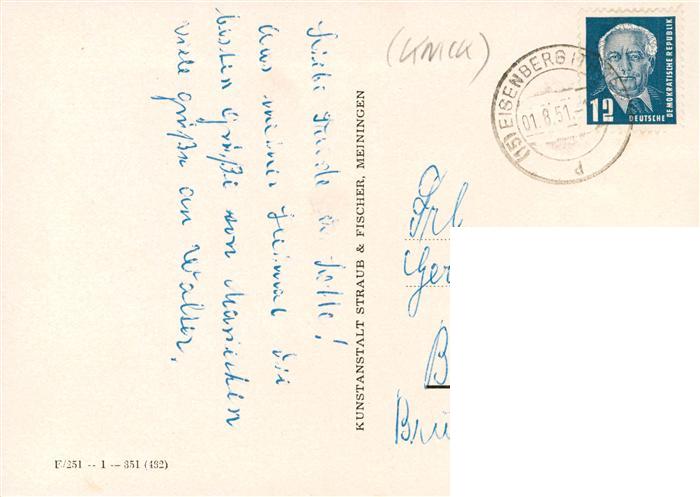 Liebe Tante u. Lotte!
Aus meiner Heimat die
besten Grüße von Mariechen
viele grüße an Walter.
KUNSTANSTALT STRAUB & FISCHER, MEININGEN
F/251 -- 1 -- 351 (432)
(KNICK)
(15) EISENBERG (T
01.8.51.
d
12
DEUTSCHE
DEMOKRATISCHE REPUBLIK
Frl
Ger
B
Brü